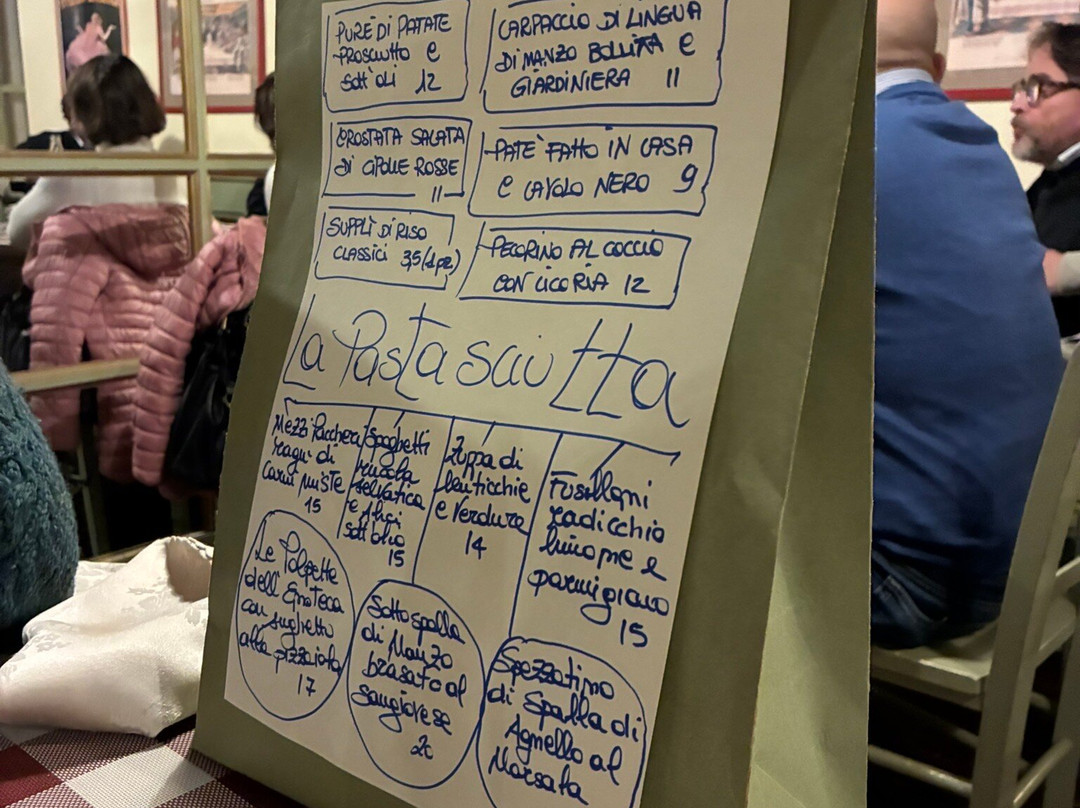 PURÈ DI PATATE
PROSCIUTTO E
SOTT'OLI 12
CARPACCIO DI LINGUA
DI MANZO BOLLITA E
GIARDINIERA 11
CROSTATA SALATA
DI CIPOLLE ROSSE
11
PATÈ FATTO IN CASA
E CAVOLO NERO 9
SUPPLÌ DI RISO
CLASSICI 3,5 (al pz)
PECORINO AL COCCIO
CON CICORIA 12
La Pastasciutta
Mezzi Paccheri
ragù di
carni miste
15
Spaghetti
rucola
selvatica
e Alici
sott'olio
15
Zuppa di
lenticchie
e Verdure
14
Fusilloni
radicchio
limone e
parmigiano
15
Le Polpette
dell'Enoteca
con sughetto
alla pizzaiola
17
Sottospalla
di Manzo
brasato al
sangiovese
20
Spezzatino
di Spalla di
Agnello al
Marsala